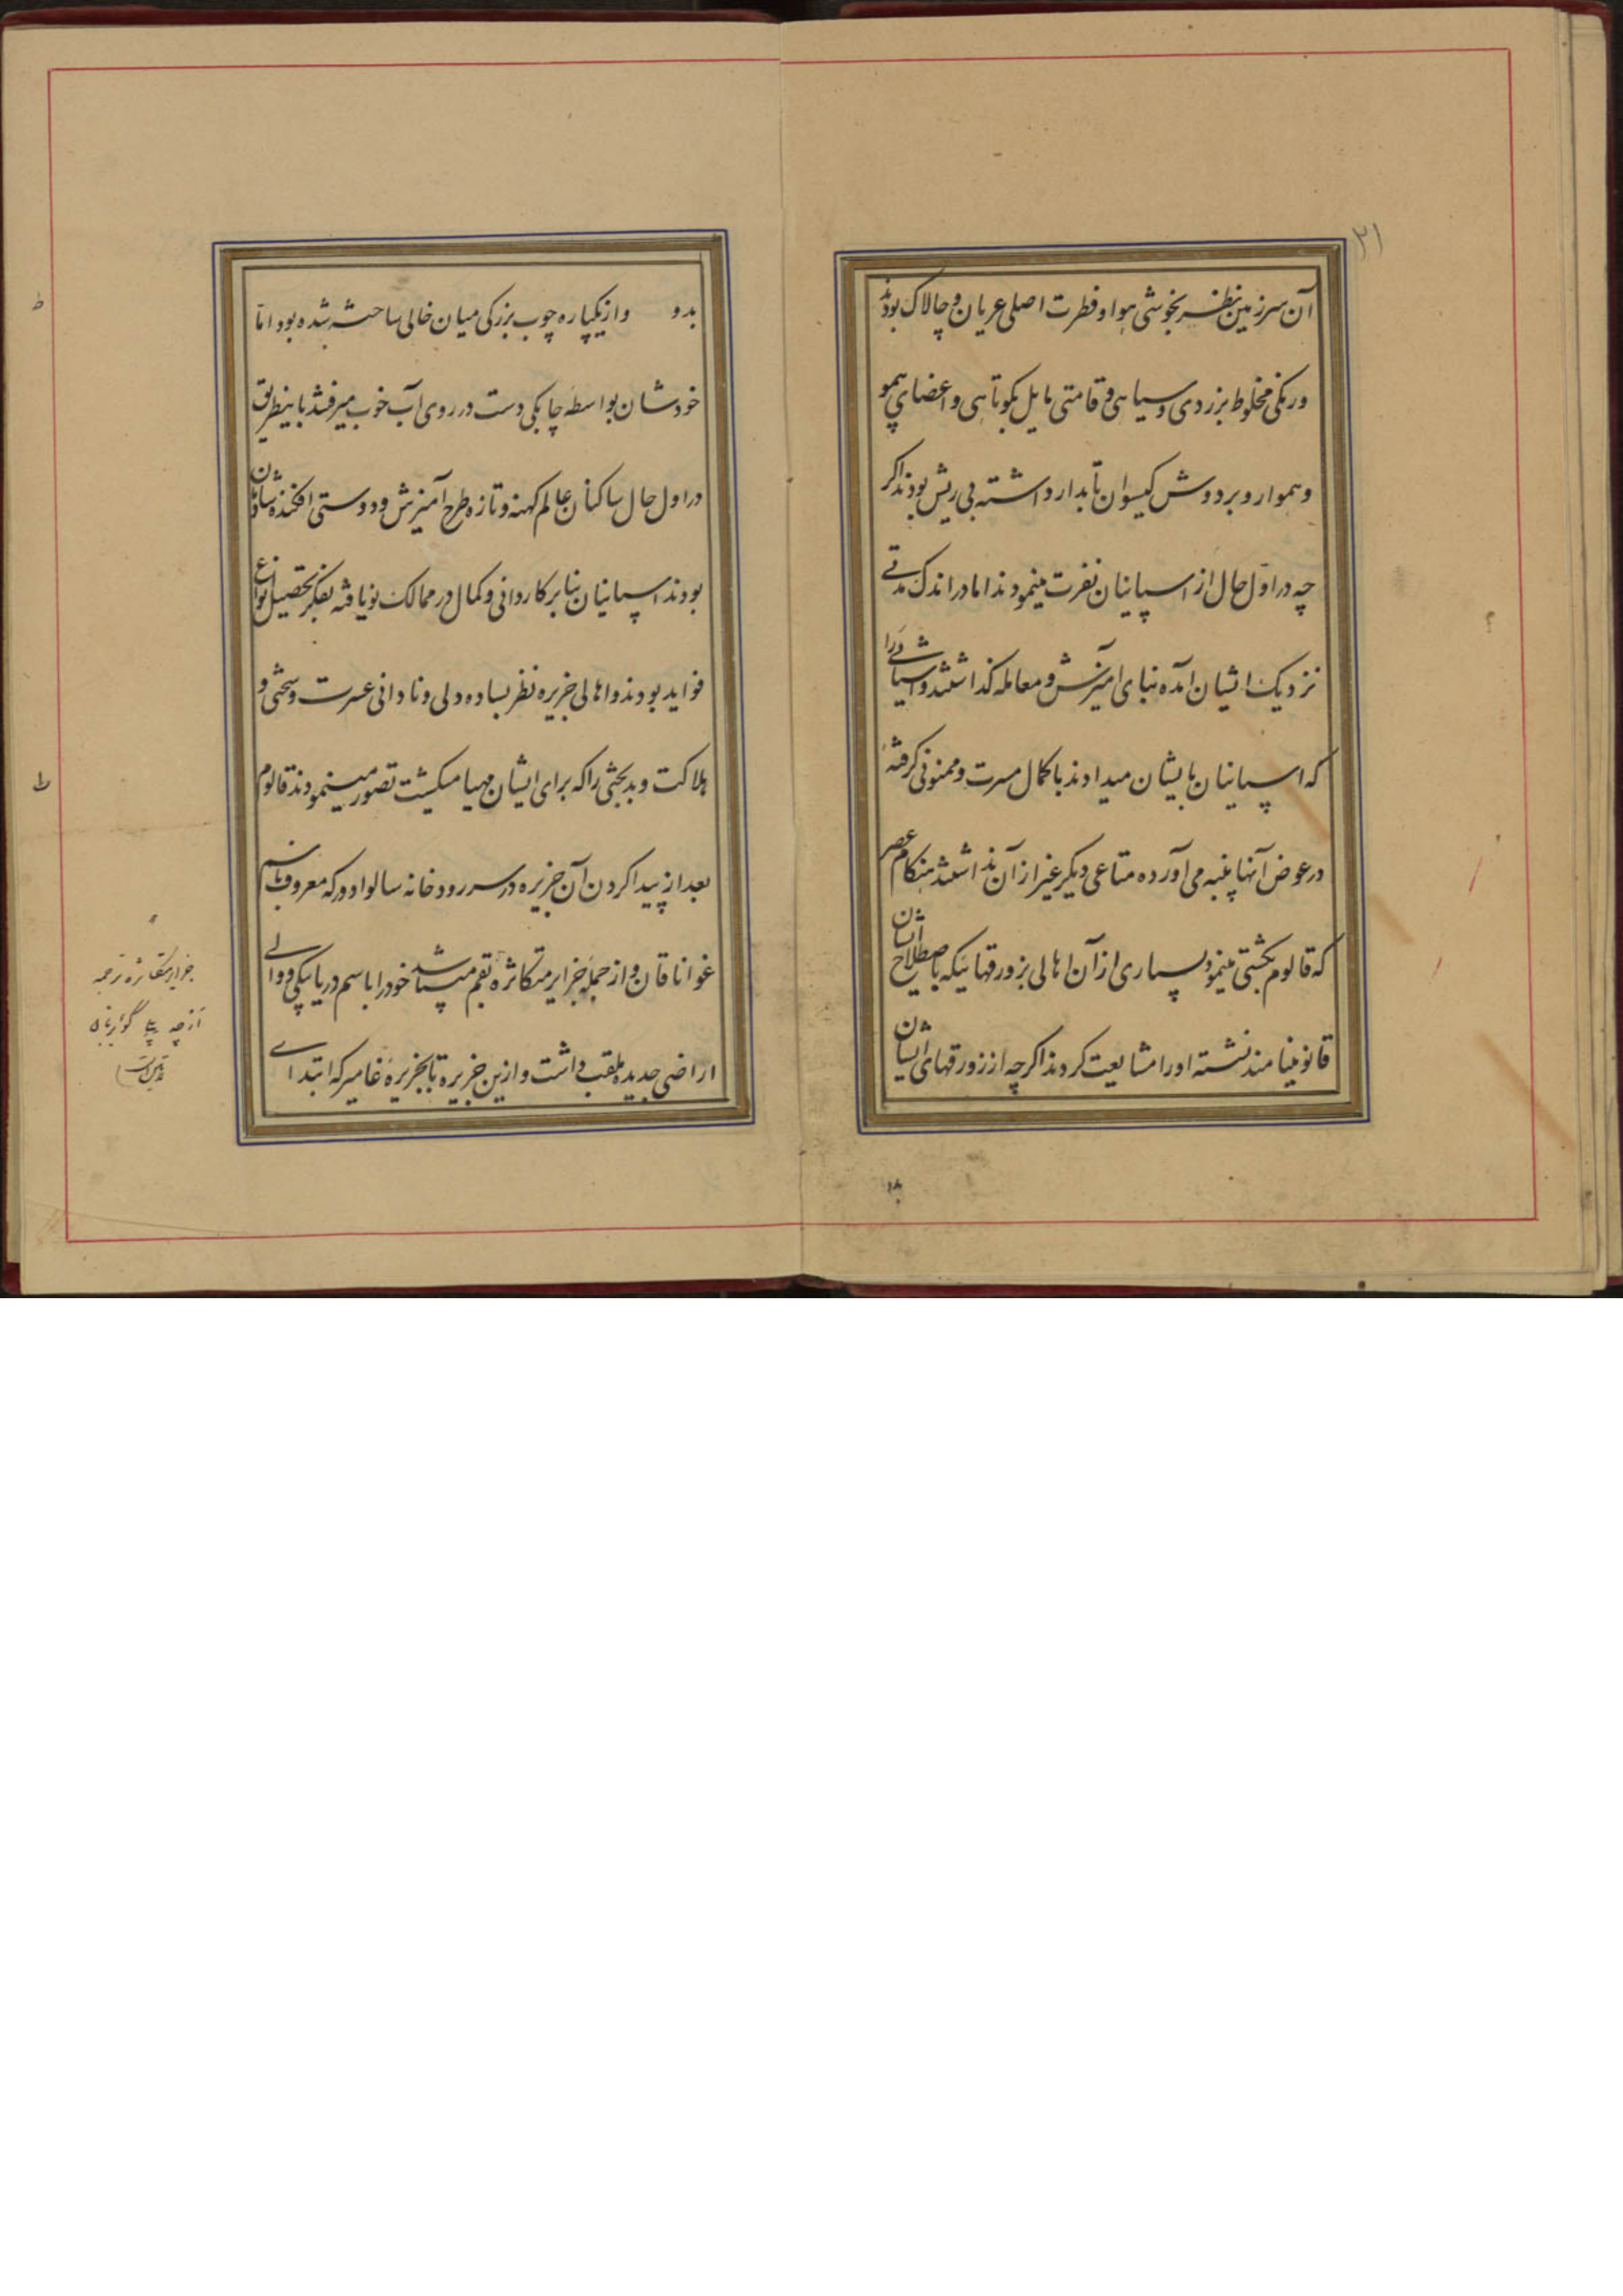 ۲۱
آن سرزمین نظر بخوشی هوا و فطرت اصلی عریان و چالاک بودند
و رنکی مخلوط بزردی و سیاهی و قامتی مایل بکوتاهی و اعضای بیمو
و هموار و بر دوش کیسوان تابدار داشته بی ریش بودند اکر
چه در اول حال از اسپانیان نفرت مینمودند اما در اندک مدتی
نزدیک ایشان آمده بنای آمیزش و معامله کذاشتند و اشیائی را
که اسپانیان بایشان میدادند با کمال مسرت و ممنونی کرفته
در عوض آنها پنبه می آورده متاعی دیکر غیر از آن نداشتند هنکام عصر
که قالوم بکشتی مینمود بسیاری از آن اهالی بزورقهائیکه باصطلاح ایشان
قانو مینامند نشسته او را مشایعت کردند اکرچه از زورقهای ایشان
بدو
بدو و از یکپاره چوب بزرکی میان خالی ساخته شده بود اما
خودشان بواسطه چابکی دست در روی آب خوب میرفتند باینطریق
در اول حال ساکنان عالم کهنه و تازه طرح آمیزش و دوستی افکنده شادمان
بودند اسپانیان بنا بر کاردانی و کمال در ممالک نو یافته بفکر تحصیل انواع
فواید بودند و اهالی جزیره نظر بساده دلی و نادانی عسرت و سختی و
هلاکت و بدبختی را که برای ایشان مهیا میکشت تصور مینمودند قالوم
بعد از پیدا کردن آن جزیره در سر رودخانه سالوادور که معروف باسم
غواناقان و از جمله جزایر متکاثره بقم میباشد خود را باسم دریابیکی و والی
اراضی جدیده ملقب داشت و ازین جزیره تا بجزیره غامیر که ابتدای
جزایر متکاثره ترجمه